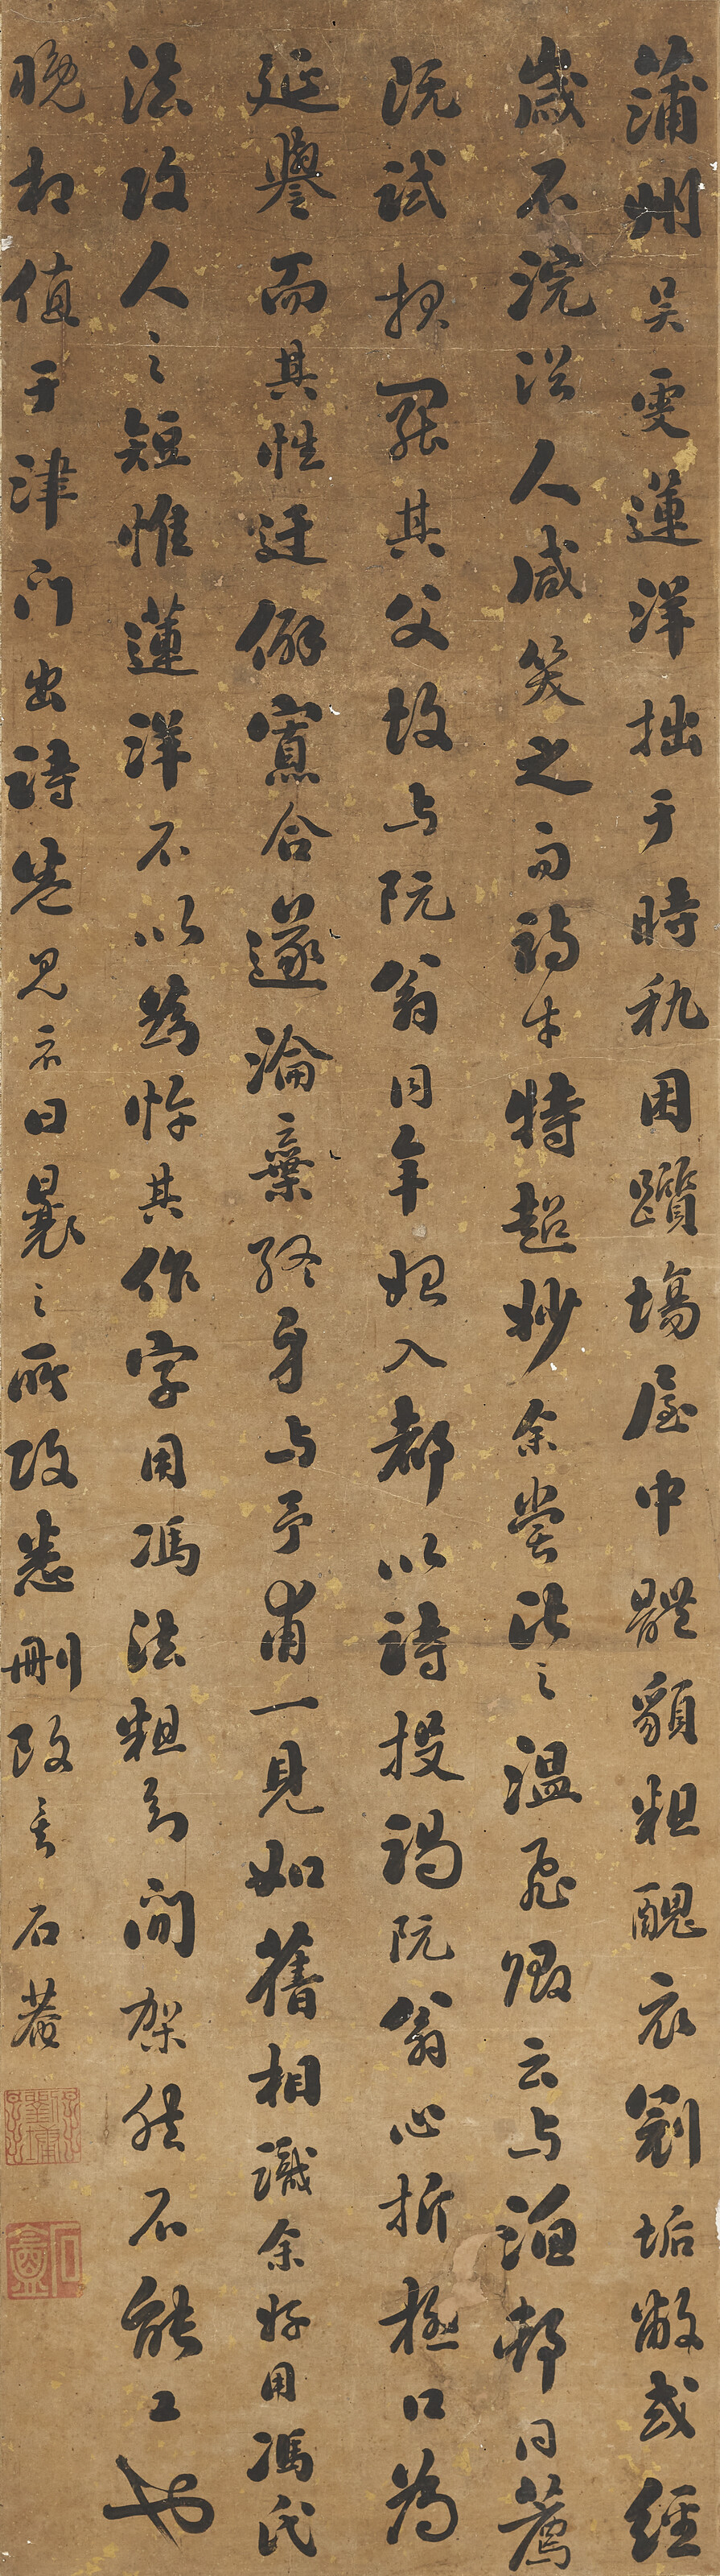 蒲州吴雯蓮洋拙于時執困躓塲屋中體貌粗醜衣冠垢敝或經
歲不浣洗人咸笑之而詩才特超妙余嘗比之溫飛卿云与漁邨同薦
既試报罷其父故与阮翁同年始入都以詩投謁阮翁心折極口为
延譽而其性迂僻寡合遂淪棄終身与予甫一見如舊相識余好用馮氏
法攻人之短惟蓮洋不以爲忤其作字用馮法粗知间架然不能工也
晚相值于津门出诗卷見示曰曩之所攻悉刪改矣 石菴